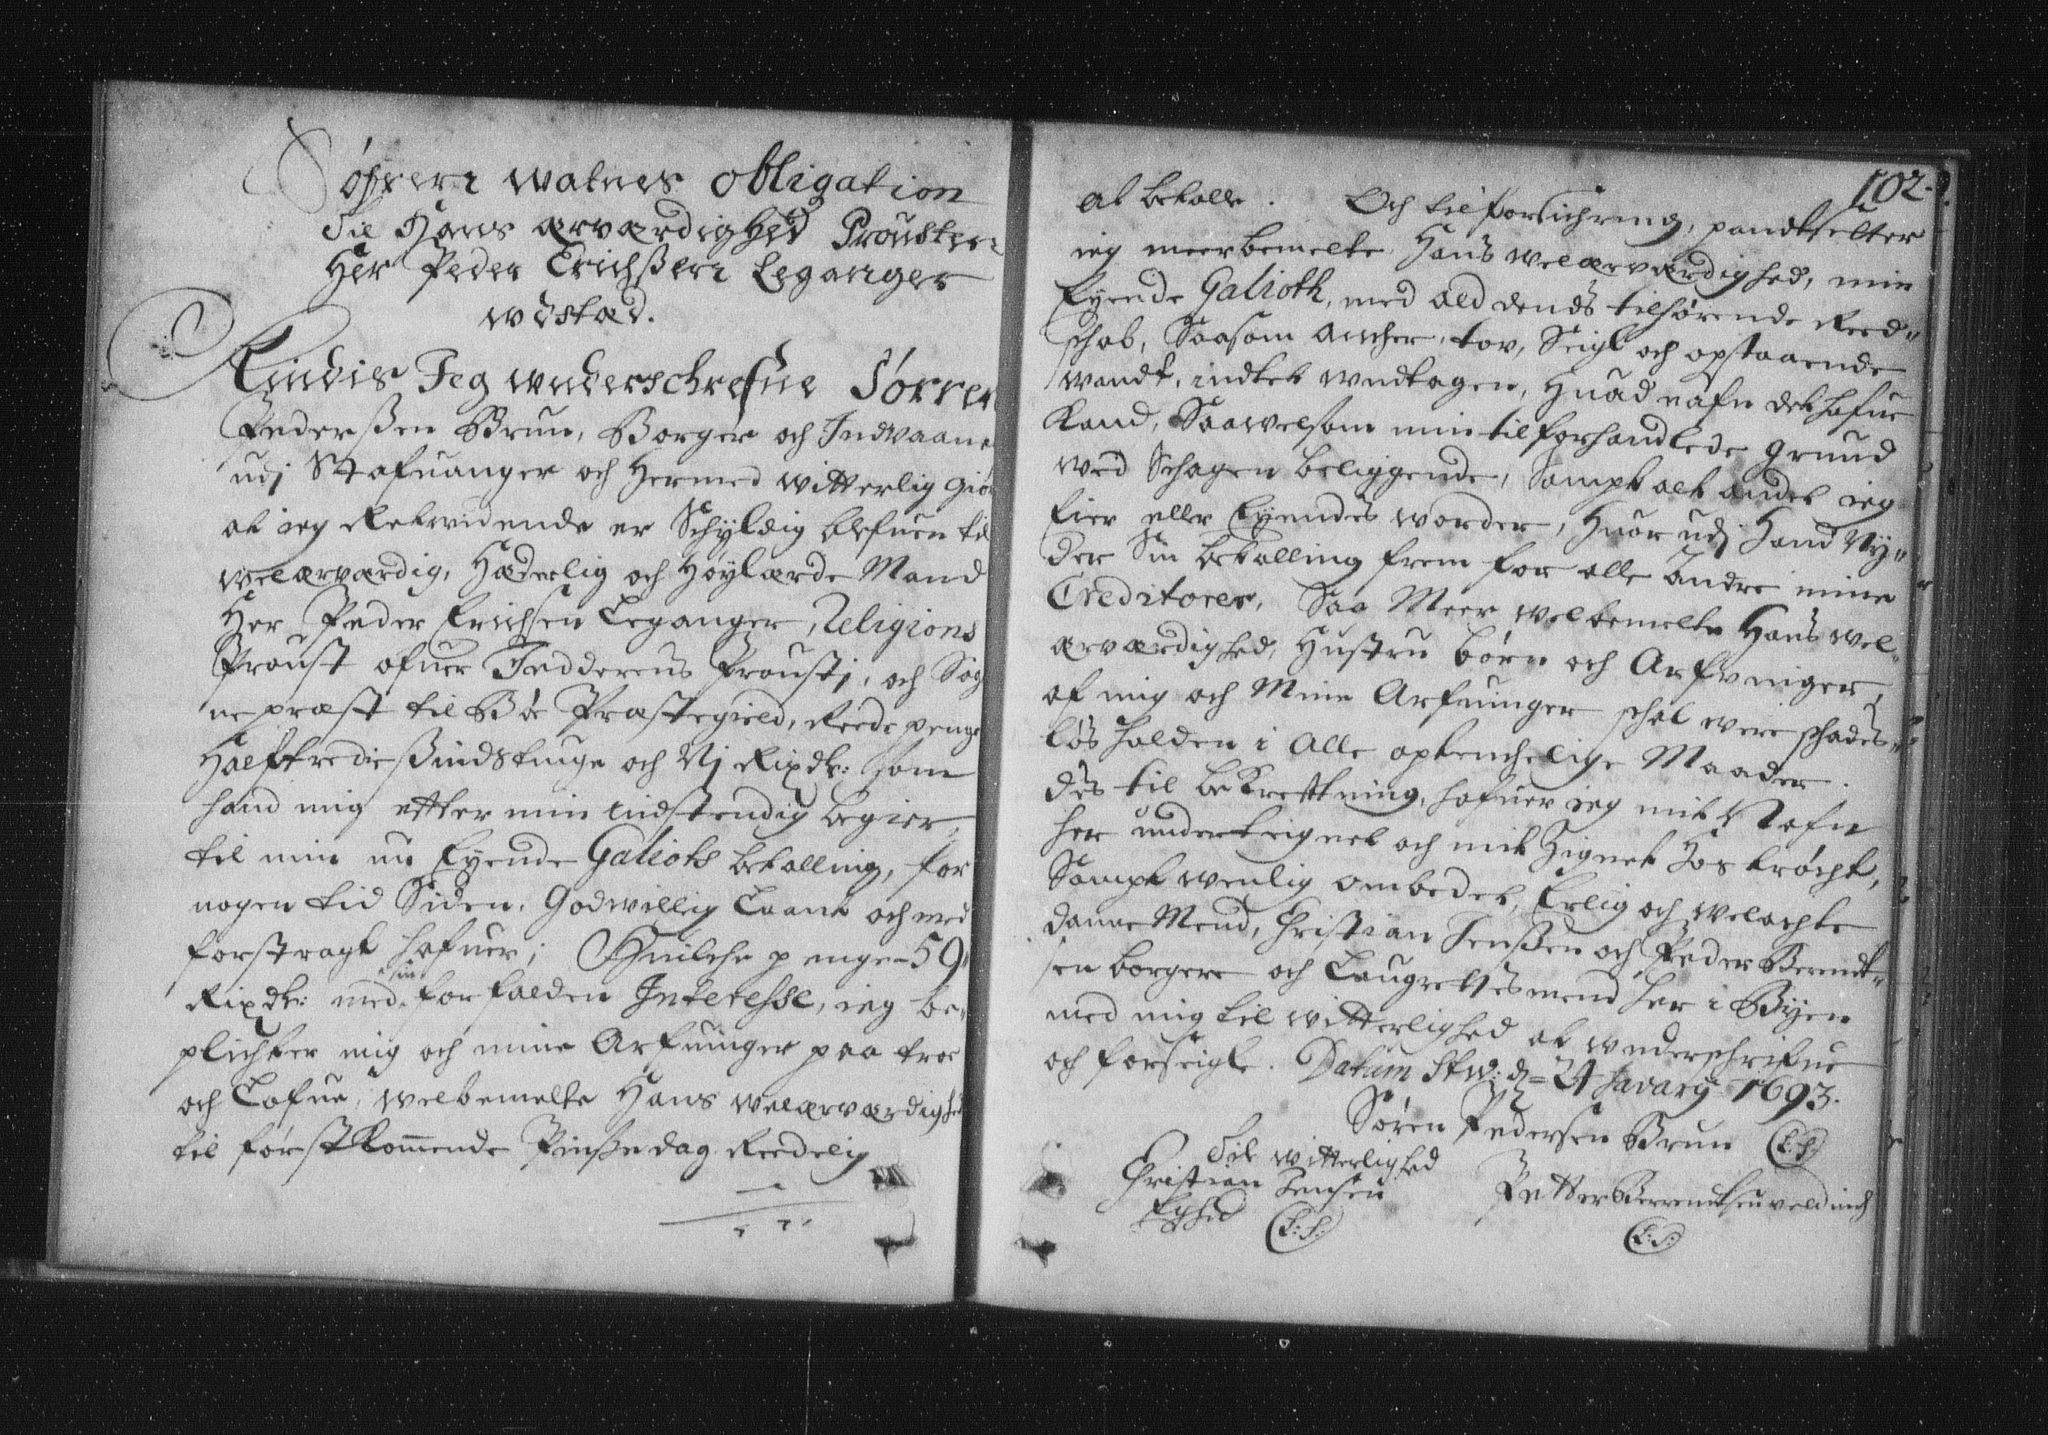 Søfren Watnes Obligation
til Hans ærværdighed Prousten
Her Peder Erichßen Leganger
udstæd.
Kiendis Jeg underschrefne Sørren
Pederßen Brun, Borger och Indvaaner
udj Stafuanger och Hermed witterlig giør
at ieg Retwidende er Schyldig blefuen til
welærværdig, Hæderlig och Høylærde Mand
Her Peder Erichsen Leganger, Religions
Proust ofuer Jedderens Proustj, och Sog
nepræst til Bøe Præstegield, Reede penge
Halftredießindstiuge och Nj Rixdr: som
hand mig etter min indstendig begier,
til min nu Eyende Galiots betalling, for
nogen tid Siden, Godwillig Laant och med
forstragt hafuer; Huilche penge 59"
Rixdr: med sin forfalden Interesse, ieg be"
plichter mig och mine Arfuinger paa troe
och Lofue, welbemelte Hans welærværdighed
til førstkommende Pinßedag Reedelig
102.
at betalle. Och til forsichring, pandtsetter
ieg meerbemelte Hans welærværdighed, min
Eyende Galioth, med ald dends tilhørende Reed"
schab, Saasom Ancher, tov, Seigl och opstaaende
wandt, indtet undtagen, Huad nafn det hafue
kand, Saawelsom min tilforhandlede grund
wed Schagen beliggende, Sampt alt andet ieg
Eier eller Eyendes worder, Huor udj Hand Ny"
der Sin betalling frem for alle Andre mine
Creditorer, Saa Meer welbemelte Hans wel"
ærværdighed, Hustru børn och Arfvinger,
af mig och Mine Arfuinger schal were schades"
løs holden i Alle optenchelige Maader.
Des til bekreftning, hafuer ieg mit Nafn
her underteignet och mit Zignet hos trøcht,
Sampt wenlig ombedet, Erlig och Welachte
danne Mend, Christian Jenßen och Peder Berndt"
sen borgere och Laugrettes mend her i Byen
med mig til witterlighed at underschrifue
och forseigle. Datum Stw: d= 24 Javarÿ 1693.
Søren Pedersen Brun (L:S:)
Til witterlighed
Christian Jensen
Petter Berrentsen veldinch
Eghed
(L:S:)
(L:S:)